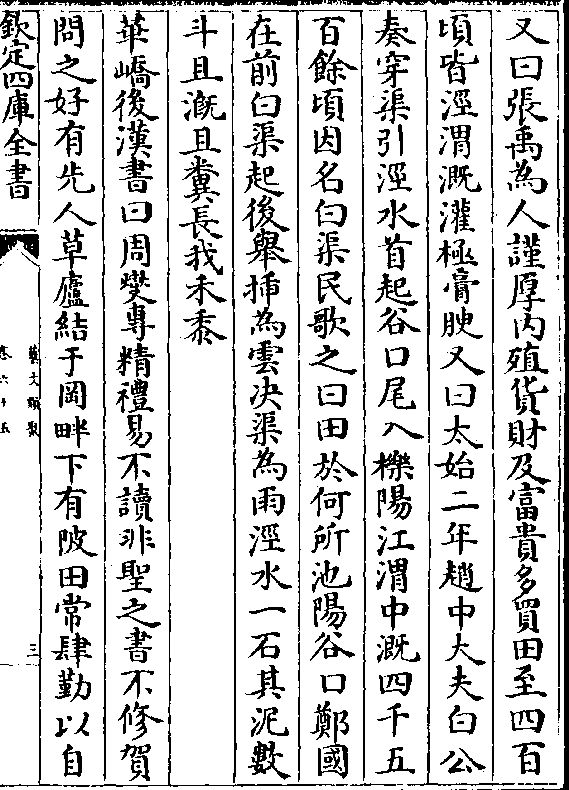 又曰張禹為人謹厚内殖貨財及富貴多買田至四百
頃皆涇渭溉灌極膏腴又曰太始二年趙中大夫白公
奏穿渠引涇水首起谷口尾入櫟陽江渭中溉四千五
百餘頃因名曰渠民歌之曰田於何所池陽谷口鄭國
在前白渠起後舉揷為雲決渠為雨涇水一石其泥數
斗且溉且糞長我禾黍
華嶠後漢書曰周燮專精禮易不讀非聖之書不修賀
問之好有先人草廬結于岡畔下有陂田常肆勤以自
欽定四庫全書
藝文類聚
卷六十五
三